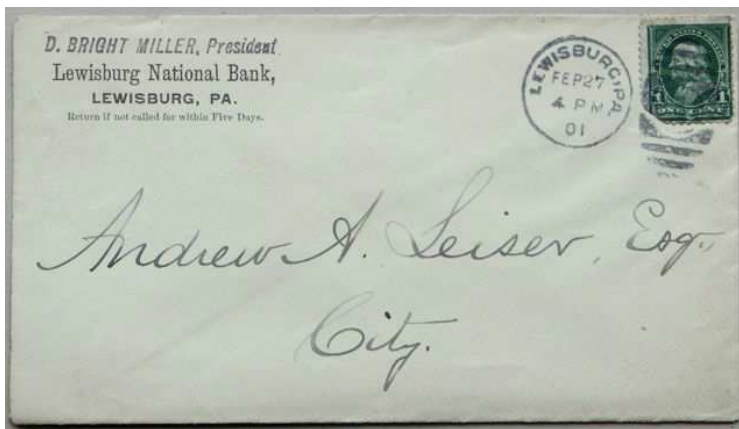 D. BRIGHT MILLER, President
Lewisburg National Bank,
LEWISBURG, PA.
Return if not called for within Five Days.
LEWISBURG, PA.
FEB 27
4 PM
01
1 1
ONE CENT
Andrew A. Leiser, Esq.,
City.